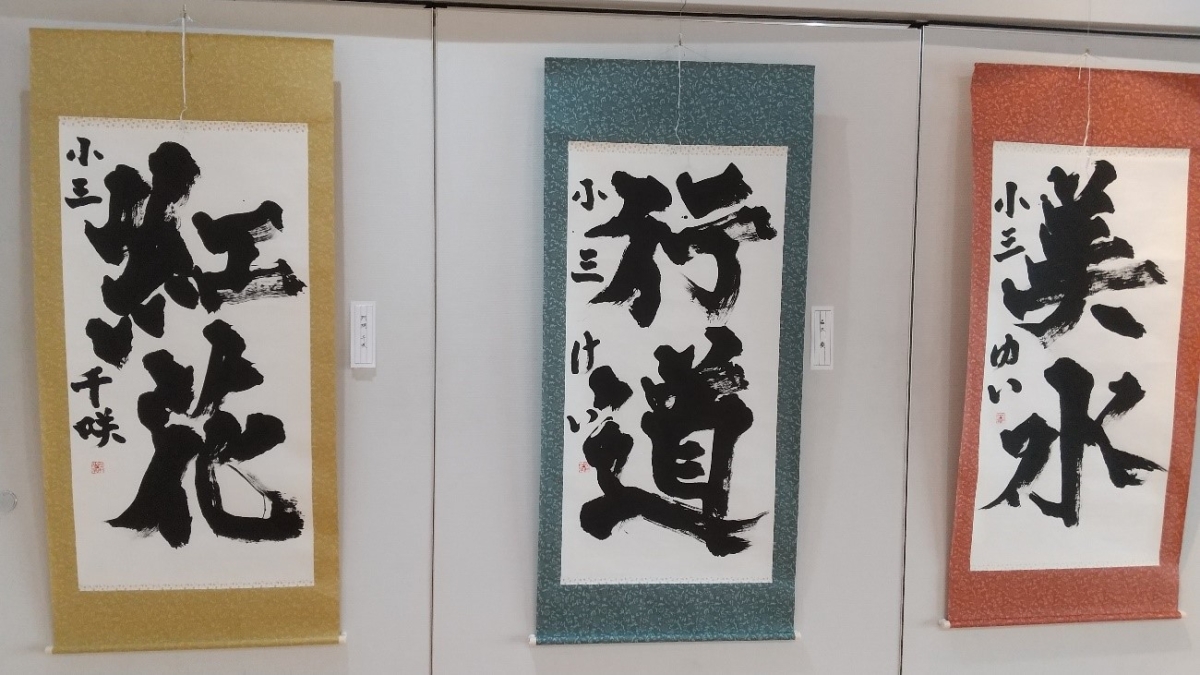 紅花
小三 千咲
行道
小三 けい
美水
小三 ゆい